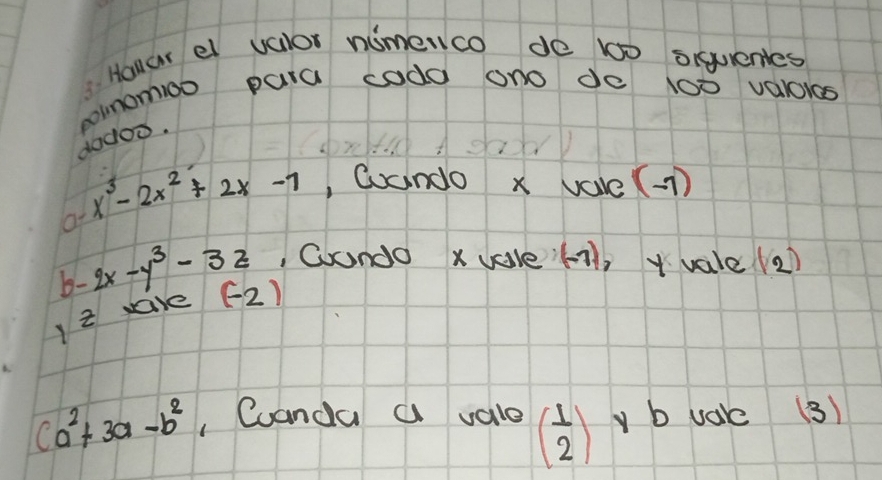 3. Hallar el valor númerico de los siguientes
polinomios para cada uno de los valores
dados.
a- x³ - 2x² + 2x - 1, Cuando x vale (-1)
b- 2x - y³ - 3z, Cuando x vale (-1), y vale (2)
y z vale (-2)
C a² + 3a - b², Cuanda a vale (1/2) y b vale (3)